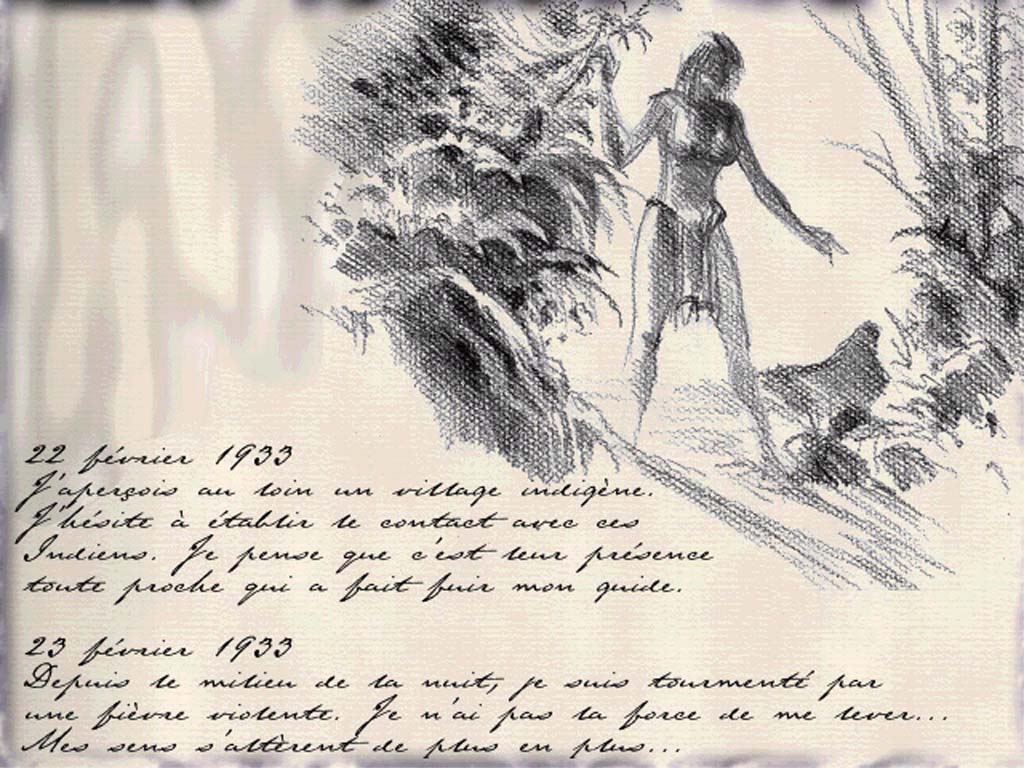 22 février 1933
J'aperçois au loin un village indigène.
J'hésite à établir le contact avec ces
Indiens. Je pense que c'est leur présence
toute proche qui a fait fuir mon guide.
23 février 1933
Depuis le milieu de la nuit, je suis tourmenté par
une fièvre violente. Je n'ai pas la force de me lever...
Mes sens s'altèrent de plus en plus...